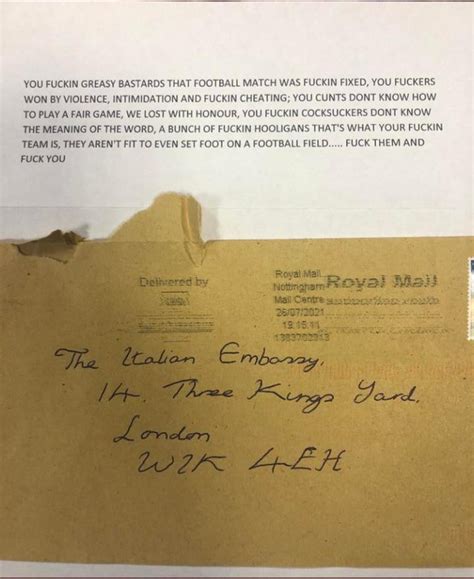 YOU FUCKIN GREASY BASTARDS THAT FOOTBALL MATCH WAS FUCKIN FIXED, YOU FUCKERS
WON BY VIOLENCE, INTIMIDATION AND FUCKIN CHEATING; YOU CUNTS DONT KNOW HOW
TO PLAY A FAIR GAME, WE LOST WITH HONOUR, YOU FUCKIN COCKSUCKERS DONT KNOW
THE MEANING OF THE WORD, A BUNCH OF FUCKIN HOOLIGANS THAT'S WHAT YOUR FUCKIN
TEAM IS, THEY AREN'T FIT TO EVEN SET FOOT ON A FOOTBALL FIELD..... FUCK THEM AND
FUCK YOU
Delivered by
Royal Mail
Nottingham
Mail Centre
26/07/2021
Royal Mail
The Italian Embassy,
14, Three Kings Yard,
London
W1K 4EH